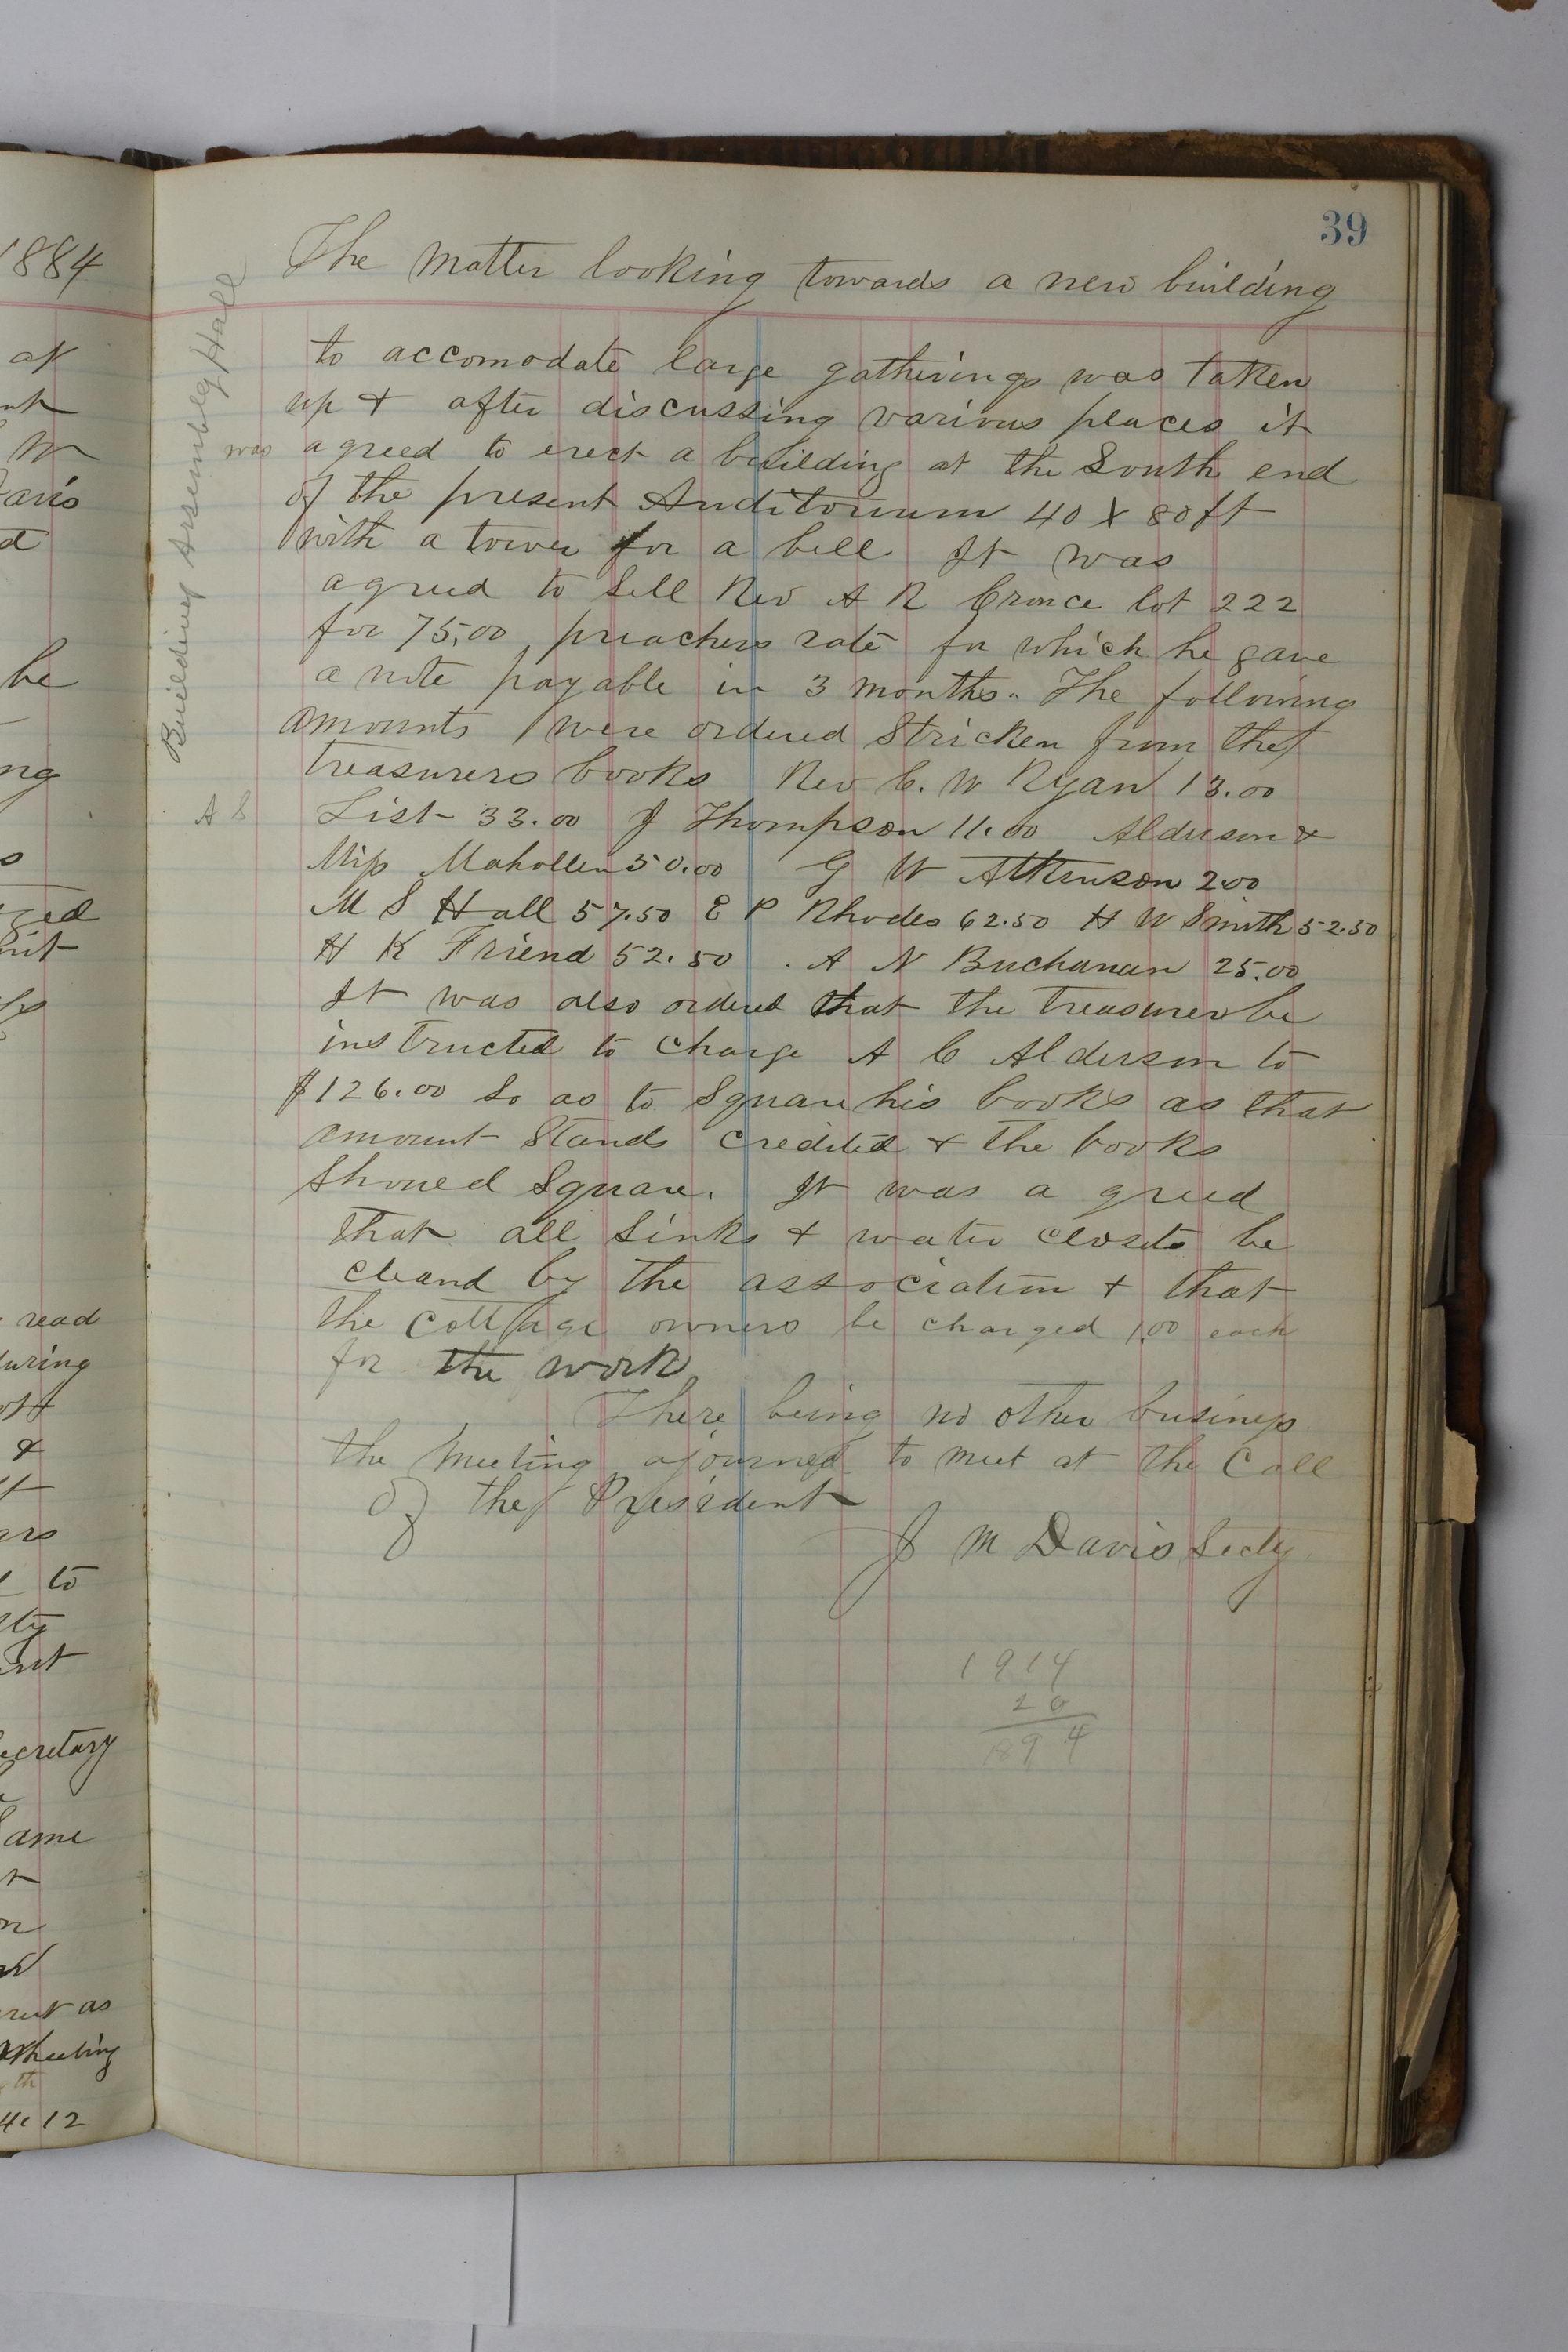 39
The matter looking towards a new building
to accomodate large gatherings was taken
up & after discussing various places it
was agreed to erect a building at the South end
of the present Auditorium 40 X 80 ft
with a tower for a bell. It was
agreed to sell Rev A R lot 222
for 75.00 preachers rate for which he gave
a note payable in 3 months. The following
amounts were ordered stricken from the
treasurers books Rev C. W Ryan 13.00
A S List 33.00 J Thompson 11.00 Alderson &
Miss 50.00 G W Atkinson 2.00
M S Hall 57.50 E P Rhodes 62.50 H W Smith 52.50
H K Friend 52.50 . A N Buchanan 25.00
It was also ordered that the treasurer be
instructed to charge A C Alderson to
$126.00 so as to square his books as that
amount stands credited & the books
showed square. It was a greed
that all sinks & water closets be
cleand by the association & that
the cottage owners be charged 1.00 each
for the work
There being no other business
the meeting ajourned to meet at the Call
of the President
J M Davis Secty
1914
20
1894
Building Assembly Hall
1884
at
W
avis
be
ng
read
uring
&
to
ecretary
ame
as
Wheeling
th
12